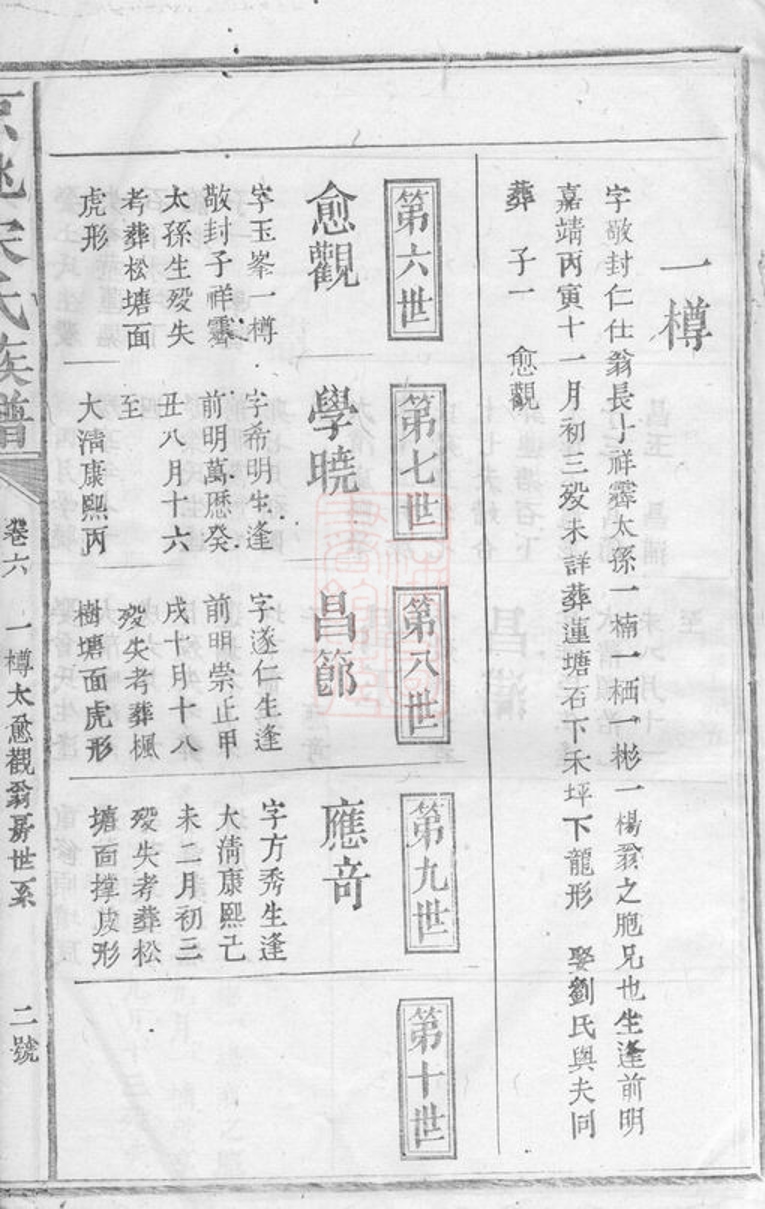 一樽
字敬封仁仕翁長子祥霽太孫一楠一栖一彬一楊翁之胞兄也生逢前明
嘉靖丙寅十一月初三殁未詳葬蓮塘石下禾坪下龍形 娶劉氏與夫同
葬 子一 愈觀
第六世
愈觀
字玉峯一樽
敬封子祥霽
太孫生殁失
考葬松塘面
虎形
第七世
學曉
字希明生逢
前明萬歷癸
丑八月十六
至
大淸康熙丙
第八世
昌節
字遂仁生逢
前明崇止甲
戌十月十八
殁失考葬楓
樹塘面虎形
第九世
應奇
字方秀生逢
大淸康熙己
未二月初三
殁失考葬松
塘面撑皮形
第十世
宋氏族譜
卷六
一樽太愈觀翁房世系
二號